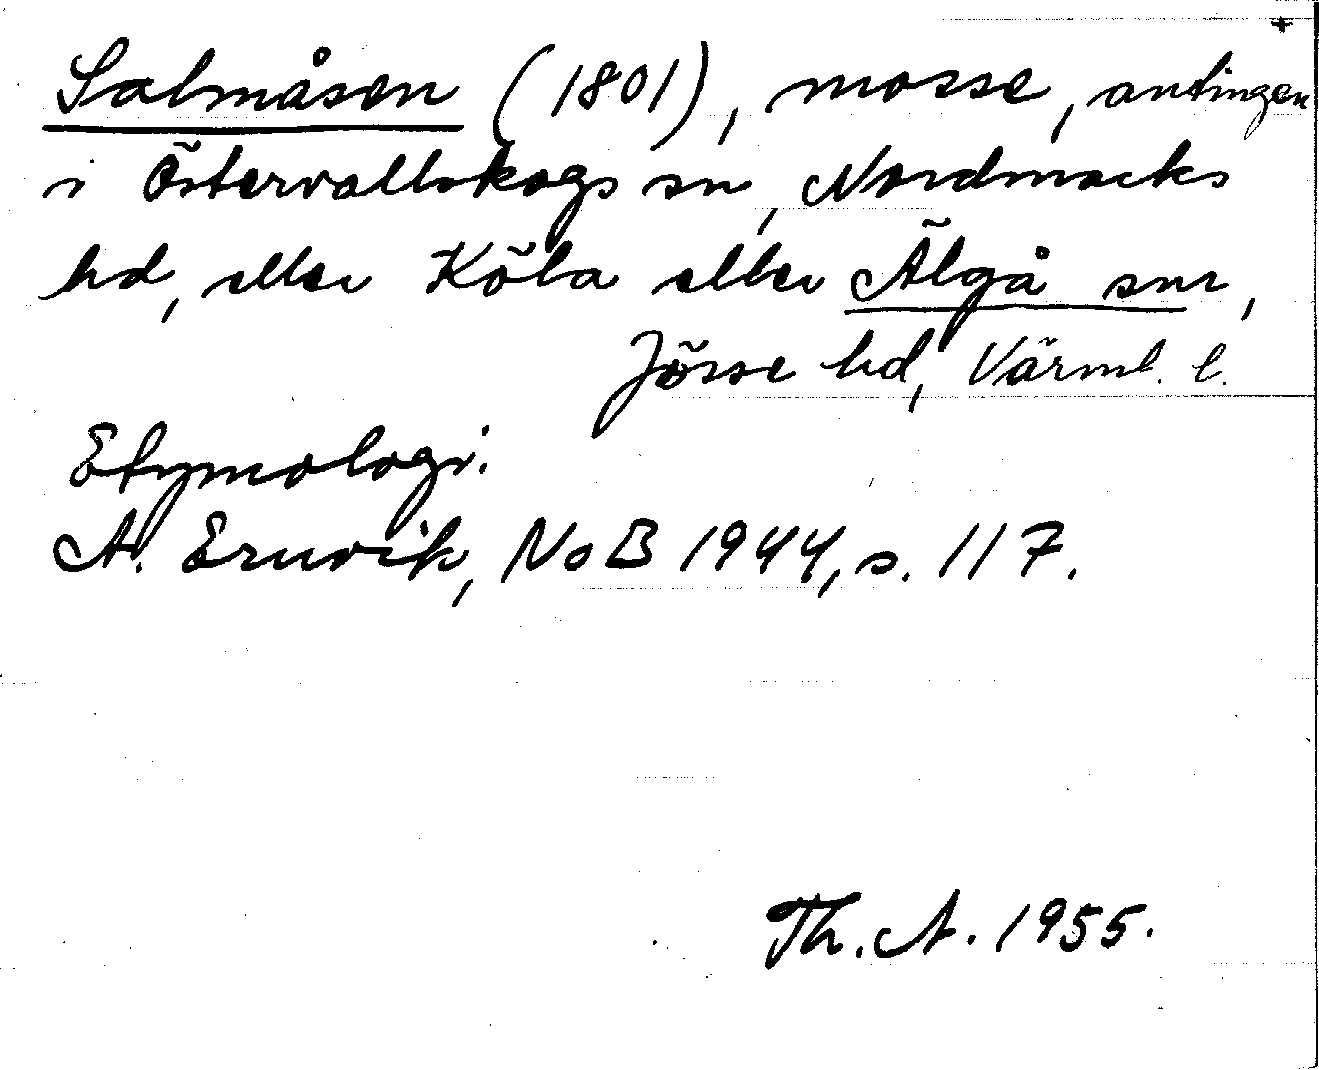 Salmåsen (1801), mosse, antingen
i Östervallskogs sn, Nordmarks
hd, eller Köla eller Älgå snr,
Jösse hd, Värml. l.
Etymologi.
A. Ernvik, NoB 1944, s. 117.
Th. A. 1955.